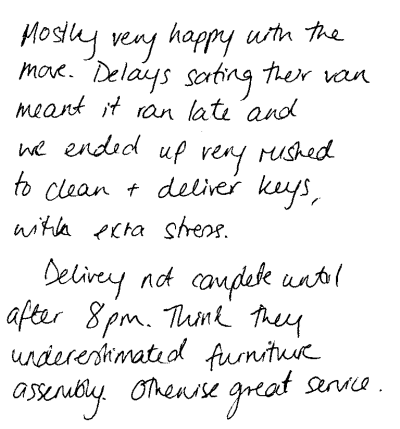 Mostly very happy with the
move. Delays sorting their van
meant it ran late and
we ended up very rushed
to clean + deliver keys,
with extra stress.
Delivery not complete until
after 8pm. Think they
underestimated furniture
assembly. Otherwise great service.